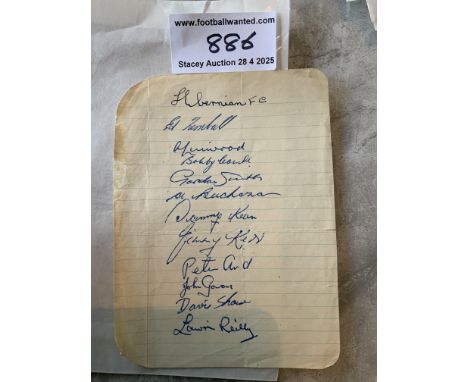 www.footballwanted.com
886
Stacey Auction 28 4 2025
Hibernian FC
Ed Turnbull
Bobby Combe
Gordon Smith
Buchanan
Kean
Jimmy Kerr
Peter Aird
John Govan
Davie Shaw
Lawrie Reilly